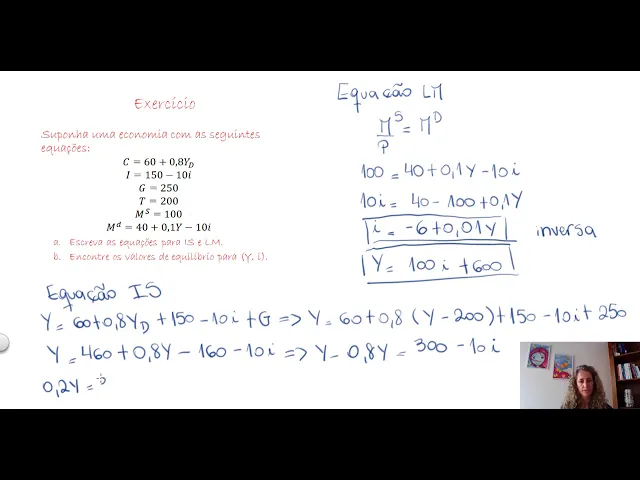 Exercício
Suponha uma economia com as seguintes
equações:
C = 60 + 0,8Y_D
I = 150 − 10i
G = 250
T = 200
M^S = 100
M^d = 40 + 0,1Y − 10i
a. Escreva as equações para IS e LM.
b. Encontre os valores de equilíbrio para (Y, i).
Equação LM
M^S/P = M^D
100 = 40 + 0,1Y − 10i
10i = 40 − 100 + 0,1Y
i = −6 + 0,01Y inversa
Y = 100i + 600
Equação IS
Y = 60 + 0,8Y_D + 150 − 10i + G => Y = 60 + 0,8 (Y − 200) + 150 − 10i + 250
Y = 460 + 0,8Y − 160 − 10i => Y − 0,8Y = 300 − 10i
0,2Y =